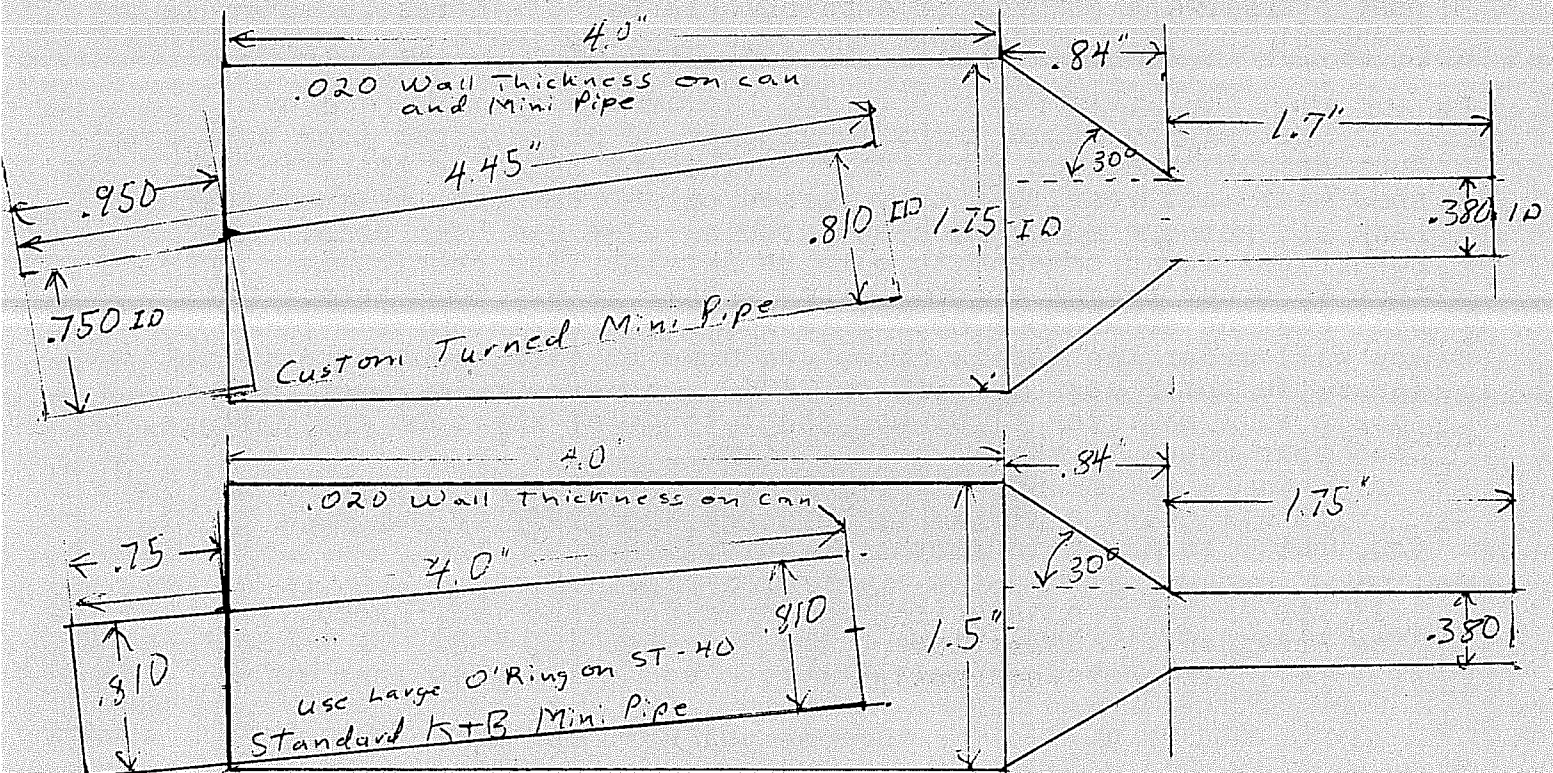 4.0"
.84"
.020 Wall Thickness on can
and Mini Pipe
1.7"
4.45"
30°
.950
.810 ID
1.75 ID
.380 ID
.750 ID
Custom Turned Mini Pipe
4.0"
.84"
.020 Wall Thickness on can
1.75"
.75
4.0"
30°
.810
1.5"
.380
.810
use Large O'Ring on ST-40
Standard K+B Mini Pipe